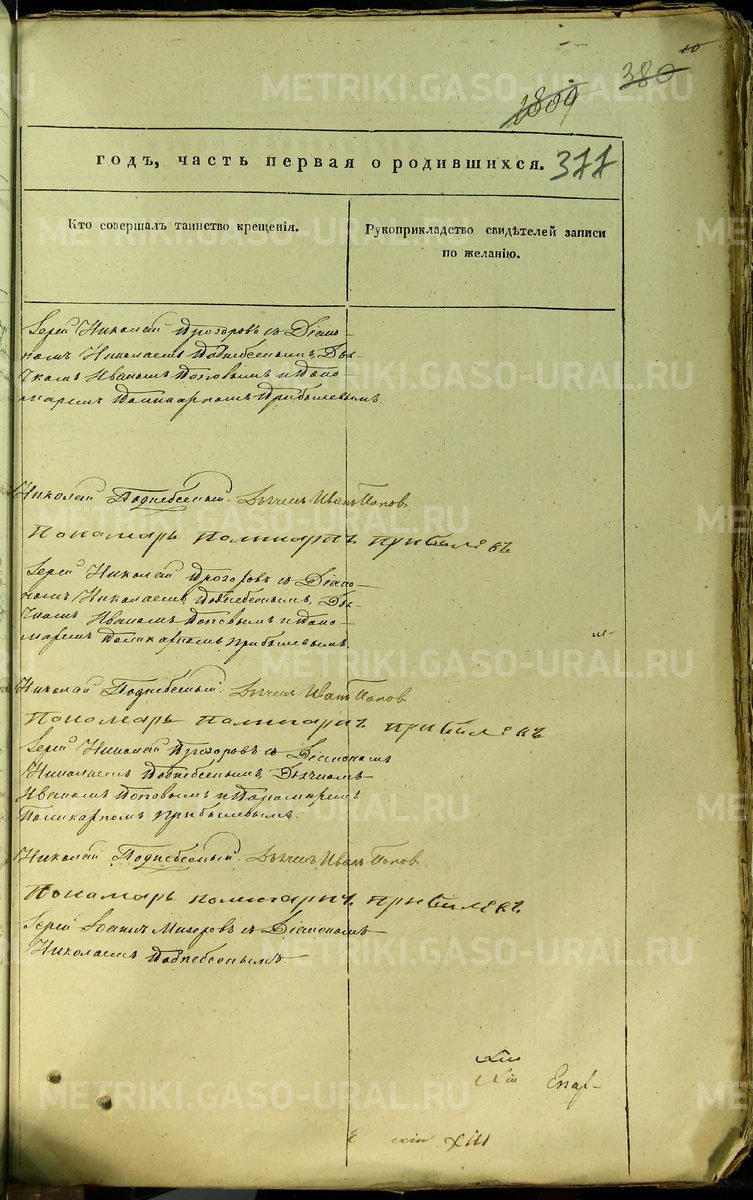 10
1809
380
годъ, часть первая о родившихся. 377
Кто совершалъ таинство крещенія.
Рукоприкладство свидѣтелей записи
по желанію.
Іерей Николай Прозоровъ съ Діако-
номъ Николаемъ Поднебеснымъ, Дья-
чкомъ Иваномъ Поповымъ и Поно-
маремъ Поликарпомъ Прибылевымъ.
Николай Поднебесный. Дьячекъ Иванъ Попов
Пономарь поликарпъ прибылевъ
Іерей Николай Прозоровъ съ Діако-
номъ Николаемъ Поднебеснымъ, Дья-
чкомъ Иваномъ Поповымъ и Поно-
маремъ Поликарпомъ Прибылевымъ.
Николай Поднебесный. Дьячекъ Иванъ Попов
Пономарь поликарпъ прибылевъ
Іерей Николай Прозоровъ съ Діакономъ
Николаемъ Поднебеснымъ, Дьячкомъ
Иваномъ Поповымъ и Пономаремъ
Поликарпомъ Прибылевымъ.
Николай Поднебесный. Дьячекъ Иванъ Попов
Пономарь поликарпъ прибылевъ.
Іерей Іоаннъ съ Діакономъ
Николаемъ Поднебеснымъ.
XIII
METRIKI.GASO-URAL.RU